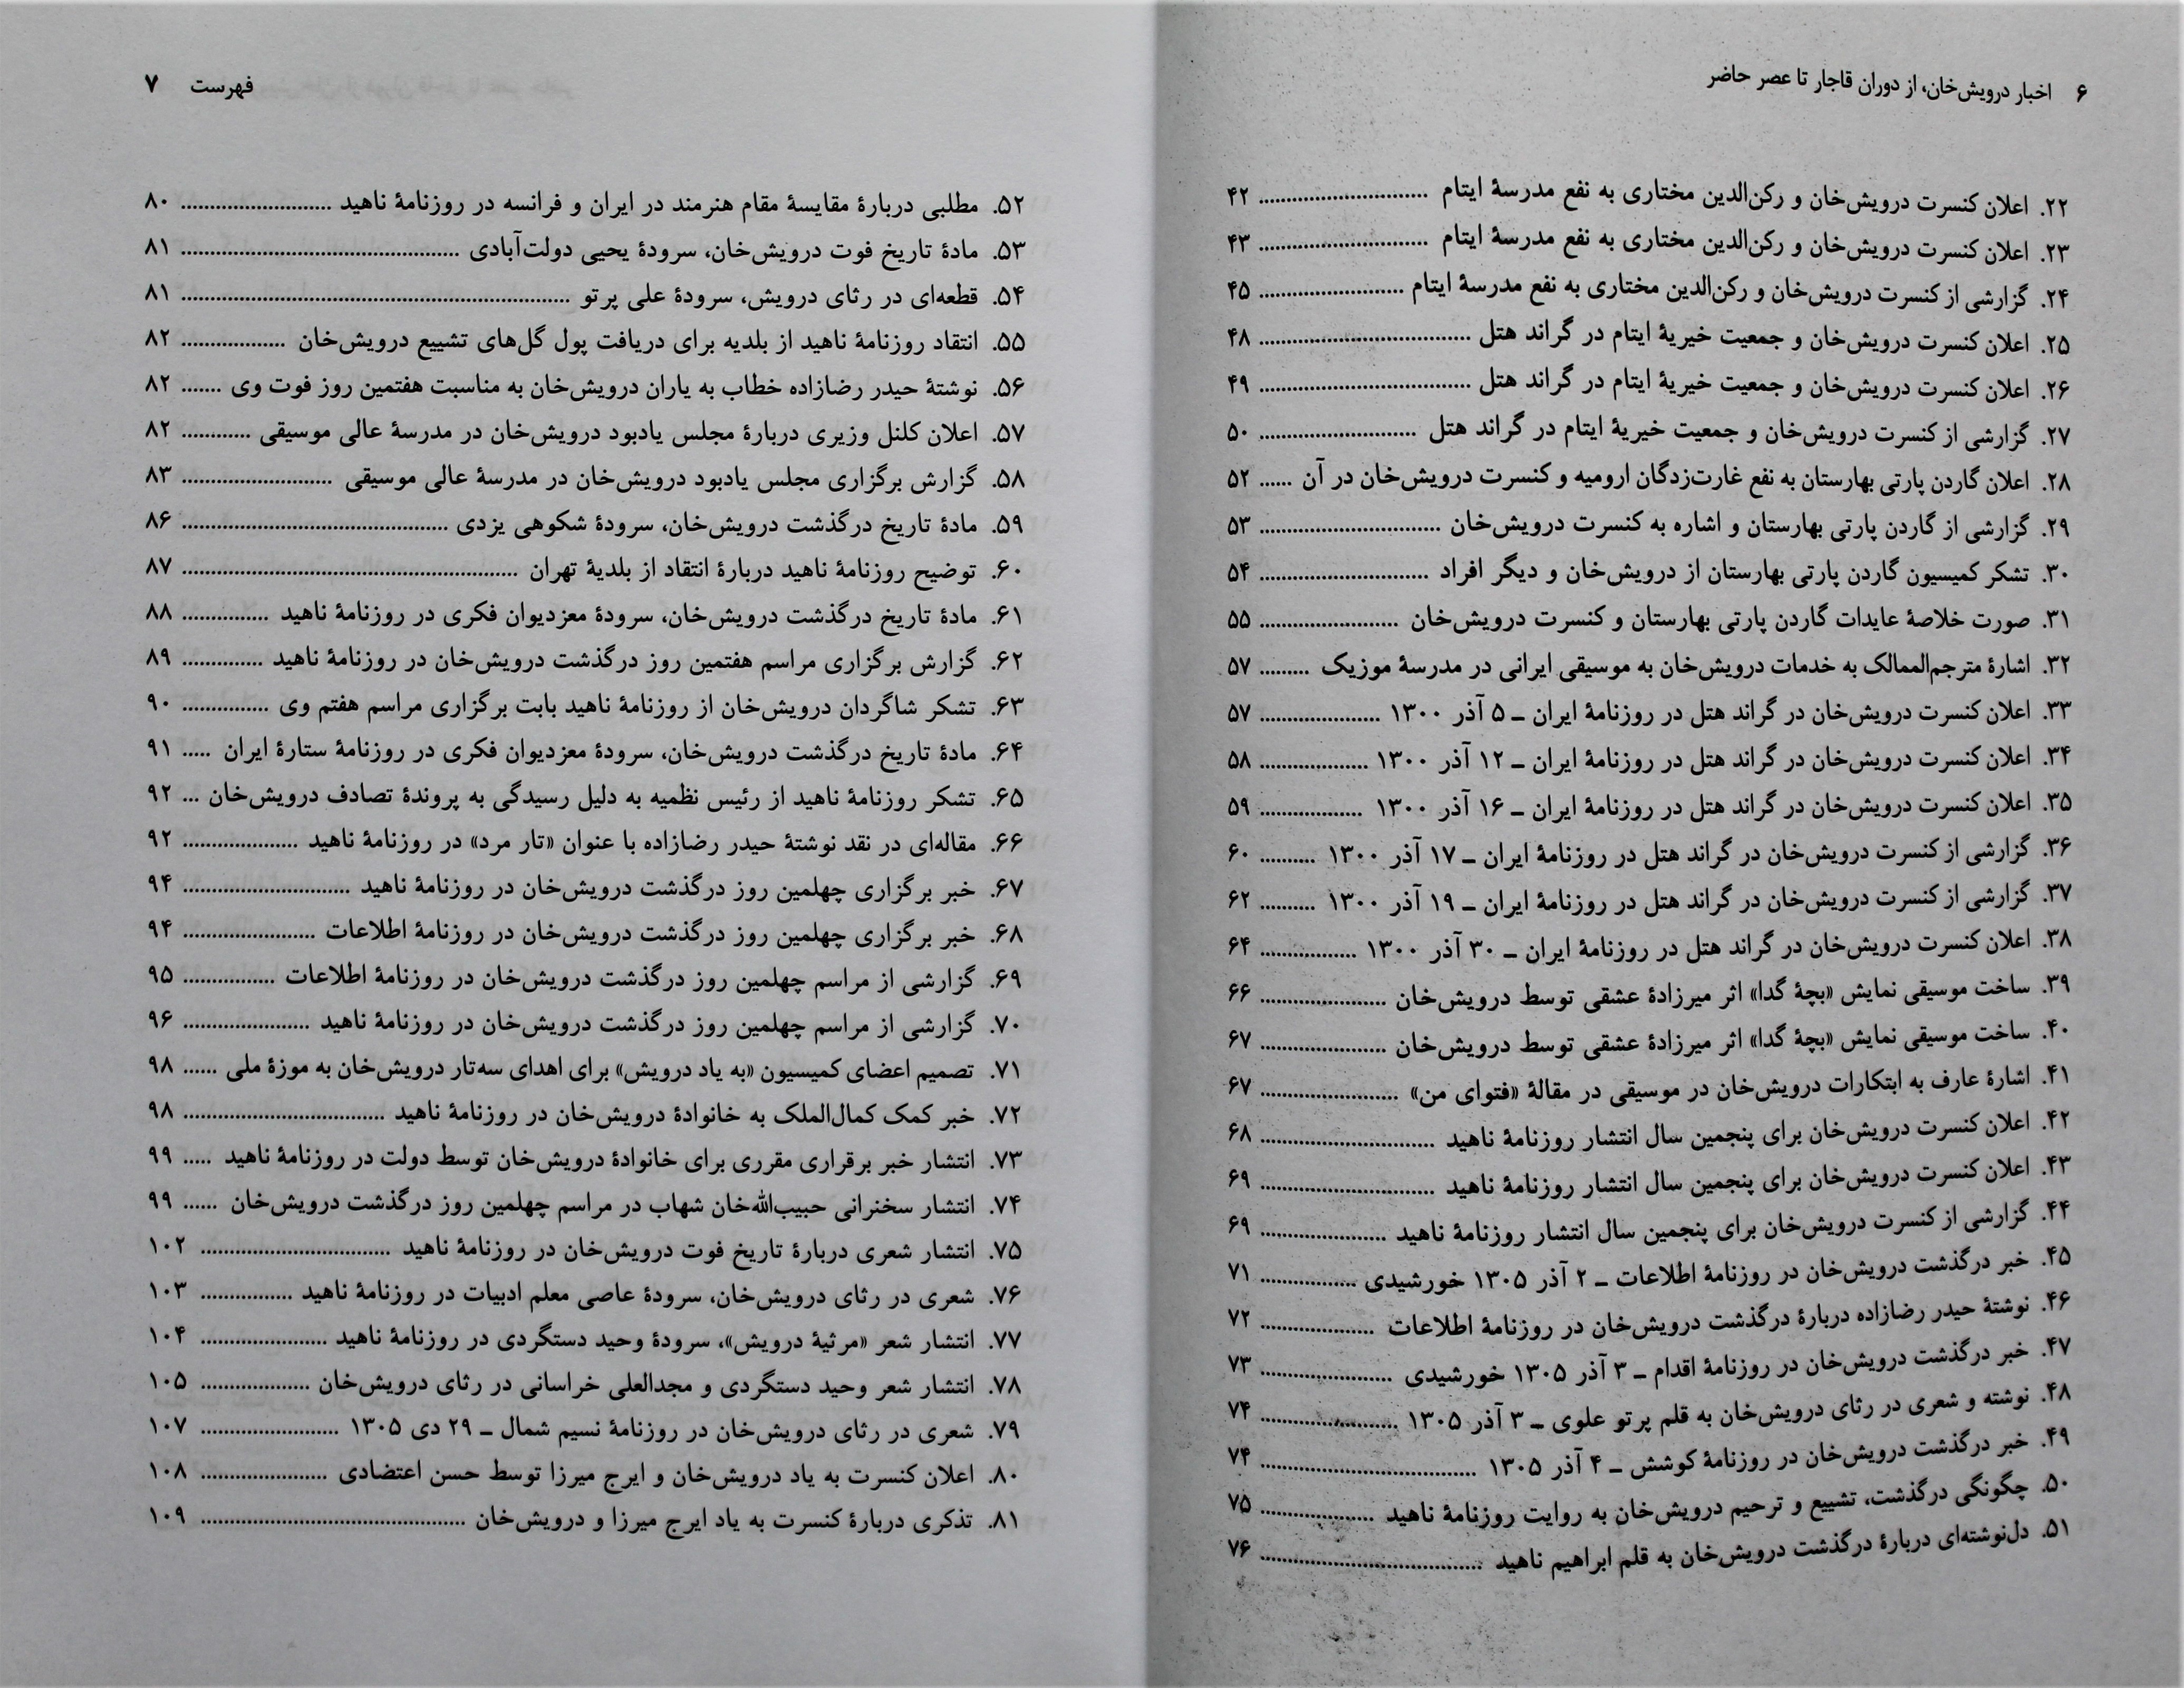 ۶ اخبار درویش‌خان، از دوران قاجار تا عصر حاضر
۲۲. اعلان کنسرت درویش‌خان و رکن‌الدین مختاری به نفع مدرسهٔ ایتام ............................ ۴۲
۲۳. اعلان کنسرت درویش‌خان و رکن‌الدین مختاری به نفع مدرسهٔ ایتام ............................ ۴۳
۲۴. گزارشی از کنسرت درویش‌خان و رکن‌الدین مختاری به نفع مدرسهٔ ایتام ........................ ۴۵
۲۵. اعلان کنسرت درویش‌خان و جمعیت خیریهٔ ایتام در گراند هتل ................................... ۴۸
۲۶. اعلان کنسرت درویش‌خان و جمعیت خیریهٔ ایتام در گراند هتل ................................... ۴۹
۲۷. گزارشی از کنسرت درویش‌خان و جمعیت خیریهٔ ایتام در گراند هتل .......................... ۵۰
۲۸. اعلان گاردن پارتی بهارستان به نفع غارت‌زدگان ارومیه و کنسرت درویش‌خان در آن ...... ۵۲
۲۹. گزارشی از گاردن پارتی بهارستان و اشاره به کنسرت درویش‌خان .............................. ۵۳
۳۰. تشکر کمیسیون گاردن پارتی بهارستان از درویش‌خان و دیگر افراد ............................ ۵۴
۳۱. صورت خلاصهٔ عایدات گاردن پارتی بهارستان و کنسرت درویش‌خان ....................... ۵۵
۳۲. اشارهٔ مترجم‌الممالک به خدمات درویش‌خان به موسیقی ایرانی در مدرسهٔ موزیک ......... ۵۷
۳۳. اعلان کنسرت درویش‌خان در گراند هتل در روزنامهٔ ایران ـ ۵ آذر ۱۳۰۰ .................... ۵۷
۳۴. اعلان کنسرت درویش‌خان در گراند هتل در روزنامهٔ ایران ـ ۱۲ آذر ۱۳۰۰ .................. ۵۸
۳۵. اعلان کنسرت درویش‌خان در گراند هتل در روزنامهٔ ایران ـ ۱۶ آذر ۱۳۰۰ ................. ۵۹
۳۶. گزارشی از کنسرت درویش‌خان در گراند هتل در روزنامهٔ ایران ـ ۱۷ آذر ۱۳۰۰ ......... ۶۰
۳۷. گزارشی از کنسرت درویش‌خان در گراند هتل در روزنامهٔ ایران ـ ۱۹ آذر ۱۳۰۰ ......... ۶۲
۳۸. اعلان کنسرت درویش‌خان در گراند هتل در روزنامهٔ ایران ـ ۳۰ آذر ۱۳۰۰ ................ ۶۴
۳۹. ساخت موسیقی نمایش «بچهٔ گدا» اثر میرزادهٔ عشقی توسط درویش‌خان ..................... ۶۶
۴۰. ساخت موسیقی نمایش «بچهٔ گدا» اثر میرزادهٔ عشقی توسط درویش‌خان ..................... ۶۷
۴۱. اشارهٔ عارف به ابتکارات درویش‌خان در موسیقی در مقالهٔ «فتوای من» ....................... ۶۷
۴۲. اعلان کنسرت درویش‌خان برای پنجمین سال انتشار روزنامهٔ ناهید ............................. ۶۸
۴۳. اعلان کنسرت درویش‌خان برای پنجمین سال انتشار روزنامهٔ ناهید ............................. ۶۹
۴۴. گزارشی از کنسرت درویش‌خان برای پنجمین سال انتشار روزنامهٔ ناهید ..................... ۶۹
۴۵. خبر درگذشت درویش‌خان در روزنامهٔ اطلاعات ـ ۲ آذر ۱۳۰۵ خورشیدی ................ ۷۱
۴۶. نوشتهٔ حیدر رضازاده دربارهٔ درگذشت درویش‌خان در روزنامهٔ اطلاعات ................... ۷۲
۴۷. خبر درگذشت درویش‌خان در روزنامهٔ اقدام ـ ۳ آذر ۱۳۰۵ خورشیدی ...................... ۷۳
۴۸. نوشته و شعری در رثای درویش‌خان به قلم پرتو علوی ـ ۳ آذر ۱۳۰۵ ....................... ۷۴
۴۹. خبر درگذشت درویش‌خان در روزنامهٔ کوشش ـ ۴ آذر ۱۳۰۵ .................................... ۷۴
۵۰. چگونگی درگذشت، تشییع و ترحیم درویش‌خان به روایت روزنامهٔ ناهید ................... ۷۵
۵۱. دل‌نوشته‌ای دربارهٔ درگذشت درویش‌خان به قلم ابراهیم ناهید ..................................... ۷۶
فهرست ۷
۵۲. مطلبی دربارهٔ مقایسهٔ مقام هنرمند در ایران و فرانسه در روزنامهٔ ناهید ......................... ۸۰
۵۳. مادهٔ تاریخ فوت درویش‌خان، سرودهٔ یحیی دولت‌آبادی ............................................... ۸۱
۵۴. قطعه‌ای در رثای درویش، سرودهٔ علی پرتو ................................................................. ۸۱
۵۵. انتقاد روزنامهٔ ناهید از بلدیه برای دریافت پول گل‌های تشییع درویش‌خان .................. ۸۲
۵۶. نوشتهٔ حیدر رضازاده خطاب به یاران درویش‌خان به مناسبت هفتمین روز فوت وی ....... ۸۲
۵۷. اعلان کلنل وزیری دربارهٔ مجلس یادبود درویش‌خان در مدرسهٔ عالی موسیقی ............ ۸۲
۵۸. گزارش برگزاری مجلس یادبود درویش‌خان در مدرسهٔ عالی موسیقی ......................... ۸۳
۵۹. مادهٔ تاریخ درگذشت درویش‌خان، سرودهٔ شکوهی یزدی ............................................. ۸۶
۶۰. توضیح روزنامهٔ ناهید دربارهٔ انتقاد از بلدیهٔ تهران ........................................................ ۸۷
۶۱. مادهٔ تاریخ درگذشت درویش‌خان، سرودهٔ معزدیوان فکری در روزنامهٔ ناهید ............... ۸۸
۶۲. گزارش برگزاری مراسم هفتمین روز درگذشت درویش‌خان در روزنامهٔ ناهید .............. ۸۹
۶۳. تشکر شاگردان درویش‌خان از روزنامهٔ ناهید بابت برگزاری مراسم هفتم وی ............... ۹۰
۶۴. مادهٔ تاریخ درگذشت درویش‌خان، سرودهٔ معزدیوان فکری در روزنامهٔ ستارهٔ ایران ..... ۹۱
۶۵. تشکر روزنامهٔ ناهید از رئیس نظمیه به دلیل رسیدگی به پروندهٔ تصادف درویش‌خان ... ۹۲
۶۶. مقاله‌ای در نقد نوشتهٔ حیدر رضازاده با عنوان «تار مرد» در روزنامهٔ ناهید .................... ۹۲
۶۷. خبر برگزاری چهلمین روز درگذشت درویش‌خان در روزنامهٔ ناهید ............................ ۹۴
۶۸. خبر برگزاری چهلمین روز درگذشت درویش‌خان در روزنامهٔ اطلاعات ...................... ۹۴
۶۹. گزارشی از مراسم چهلمین روز درگذشت درویش‌خان در روزنامهٔ اطلاعات ................ ۹۵
۷۰. گزارشی از مراسم چهلمین روز درگذشت درویش‌خان در روزنامهٔ ناهید ..................... ۹۶
۷۱. تصمیم اعضای کمیسیون «به یاد درویش» برای اهدای سه‌تار درویش‌خان به موزهٔ ملی ...... ۹۸
۷۲. خبر کمک کمال‌الملک به خانوادهٔ درویش‌خان در روزنامهٔ ناهید .................................. ۹۸
۷۳. انتشار خبر برقراری مقرری برای خانوادهٔ درویش‌خان توسط دولت در روزنامهٔ ناهید ..... ۹۹
۷۴. انتشار سخنرانی حبیب‌الله‌خان شهاب در مراسم چهلمین روز درگذشت درویش‌خان ...... ۹۹
۷۵. انتشار شعری دربارهٔ تاریخ فوت درویش‌خان در روزنامهٔ ناهید ................................ ۱۰۲
۷۶. شعری در رثای درویش‌خان، سرودهٔ عاصی معلم ادبیات در روزنامهٔ ناهید ................ ۱۰۳
۷۷. انتشار شعر «مرثیهٔ درویش»، سرودهٔ وحید دستگردی در روزنامهٔ ناهید ..................... ۱۰۴
۷۸. انتشار شعر وحید دستگردی و مجدالعلی خراسانی در رثای درویش‌خان .................. ۱۰۵
۷۹. شعری در رثای درویش‌خان در روزنامهٔ نسیم شمال ـ ۲۹ دی ۱۳۰۵ ....................... ۱۰۷
۸۰. اعلان کنسرت به یاد درویش‌خان و ایرج میرزا توسط حسن اعتضادی ..................... ۱۰۸
۸۱. تذکری دربارهٔ کنسرت به یاد ایرج میرزا و درویش‌خان ............................................ ۱۰۹